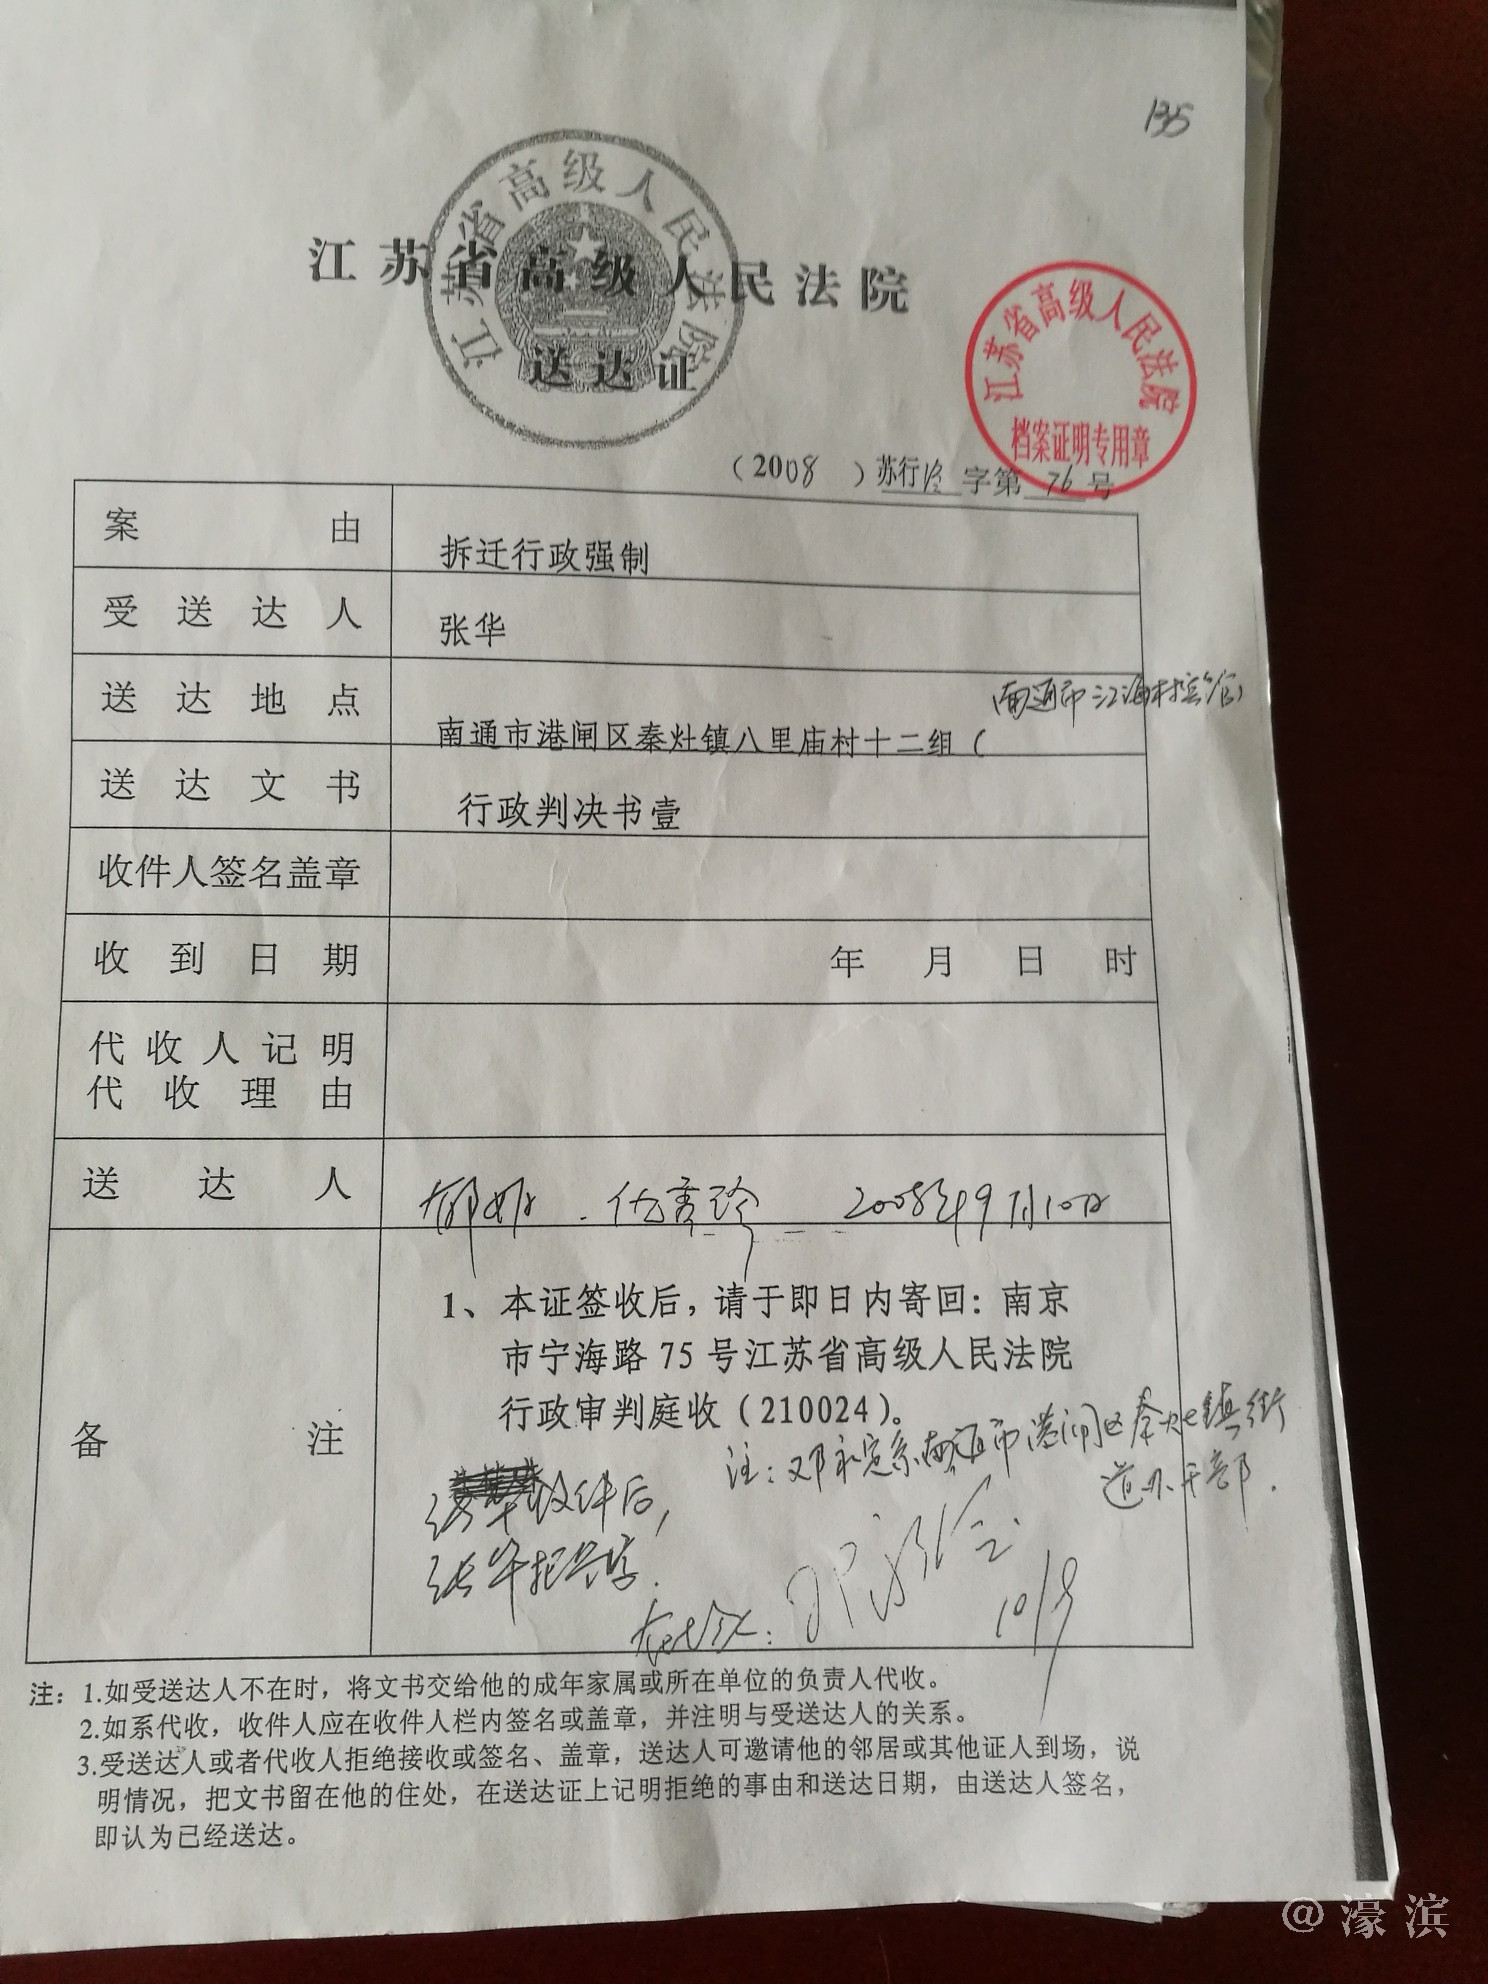 135
江苏省高级人民法院
江苏省高级人民法院
送达证
江苏省高级人民法院
档案证明专用章
（2008）苏行终字第76号
案由
拆迁行政强制
受送达人
张华
送达地点
南通市江海村宾馆
南通市港闸区秦灶镇八里庙村十二组（
送达文书
行政判决书壹
收件人签名盖章
收到日期
年 月 日 时
代收人记明
代收理由
送达人
郁娜 2008年9月10日
备注
1、本证签收后，请于即日内寄回：南京
市宁海路75号江苏省高级人民法院
行政审判庭收（210024）。
注：邓永定系南通市港闸区秦灶镇街
道办干部.
收件后，
张华拒签字.
在场人：
10/9
注：1.如受送达人不在时，将文书交给他的成年家属或所在单位的负责人代收。
2.如系代收，收件人应在收件人栏内签名或盖章，并注明与受送达人的关系。
3.受送达人或者代收人拒绝接收或签名、盖章，送达人可邀请他的邻居或其他证人到场，说
明情况，把文书留在他的住处，在送达证上记明拒绝的事由和送达日期，由送达人签名，
即认为已经送达。
@濠滨